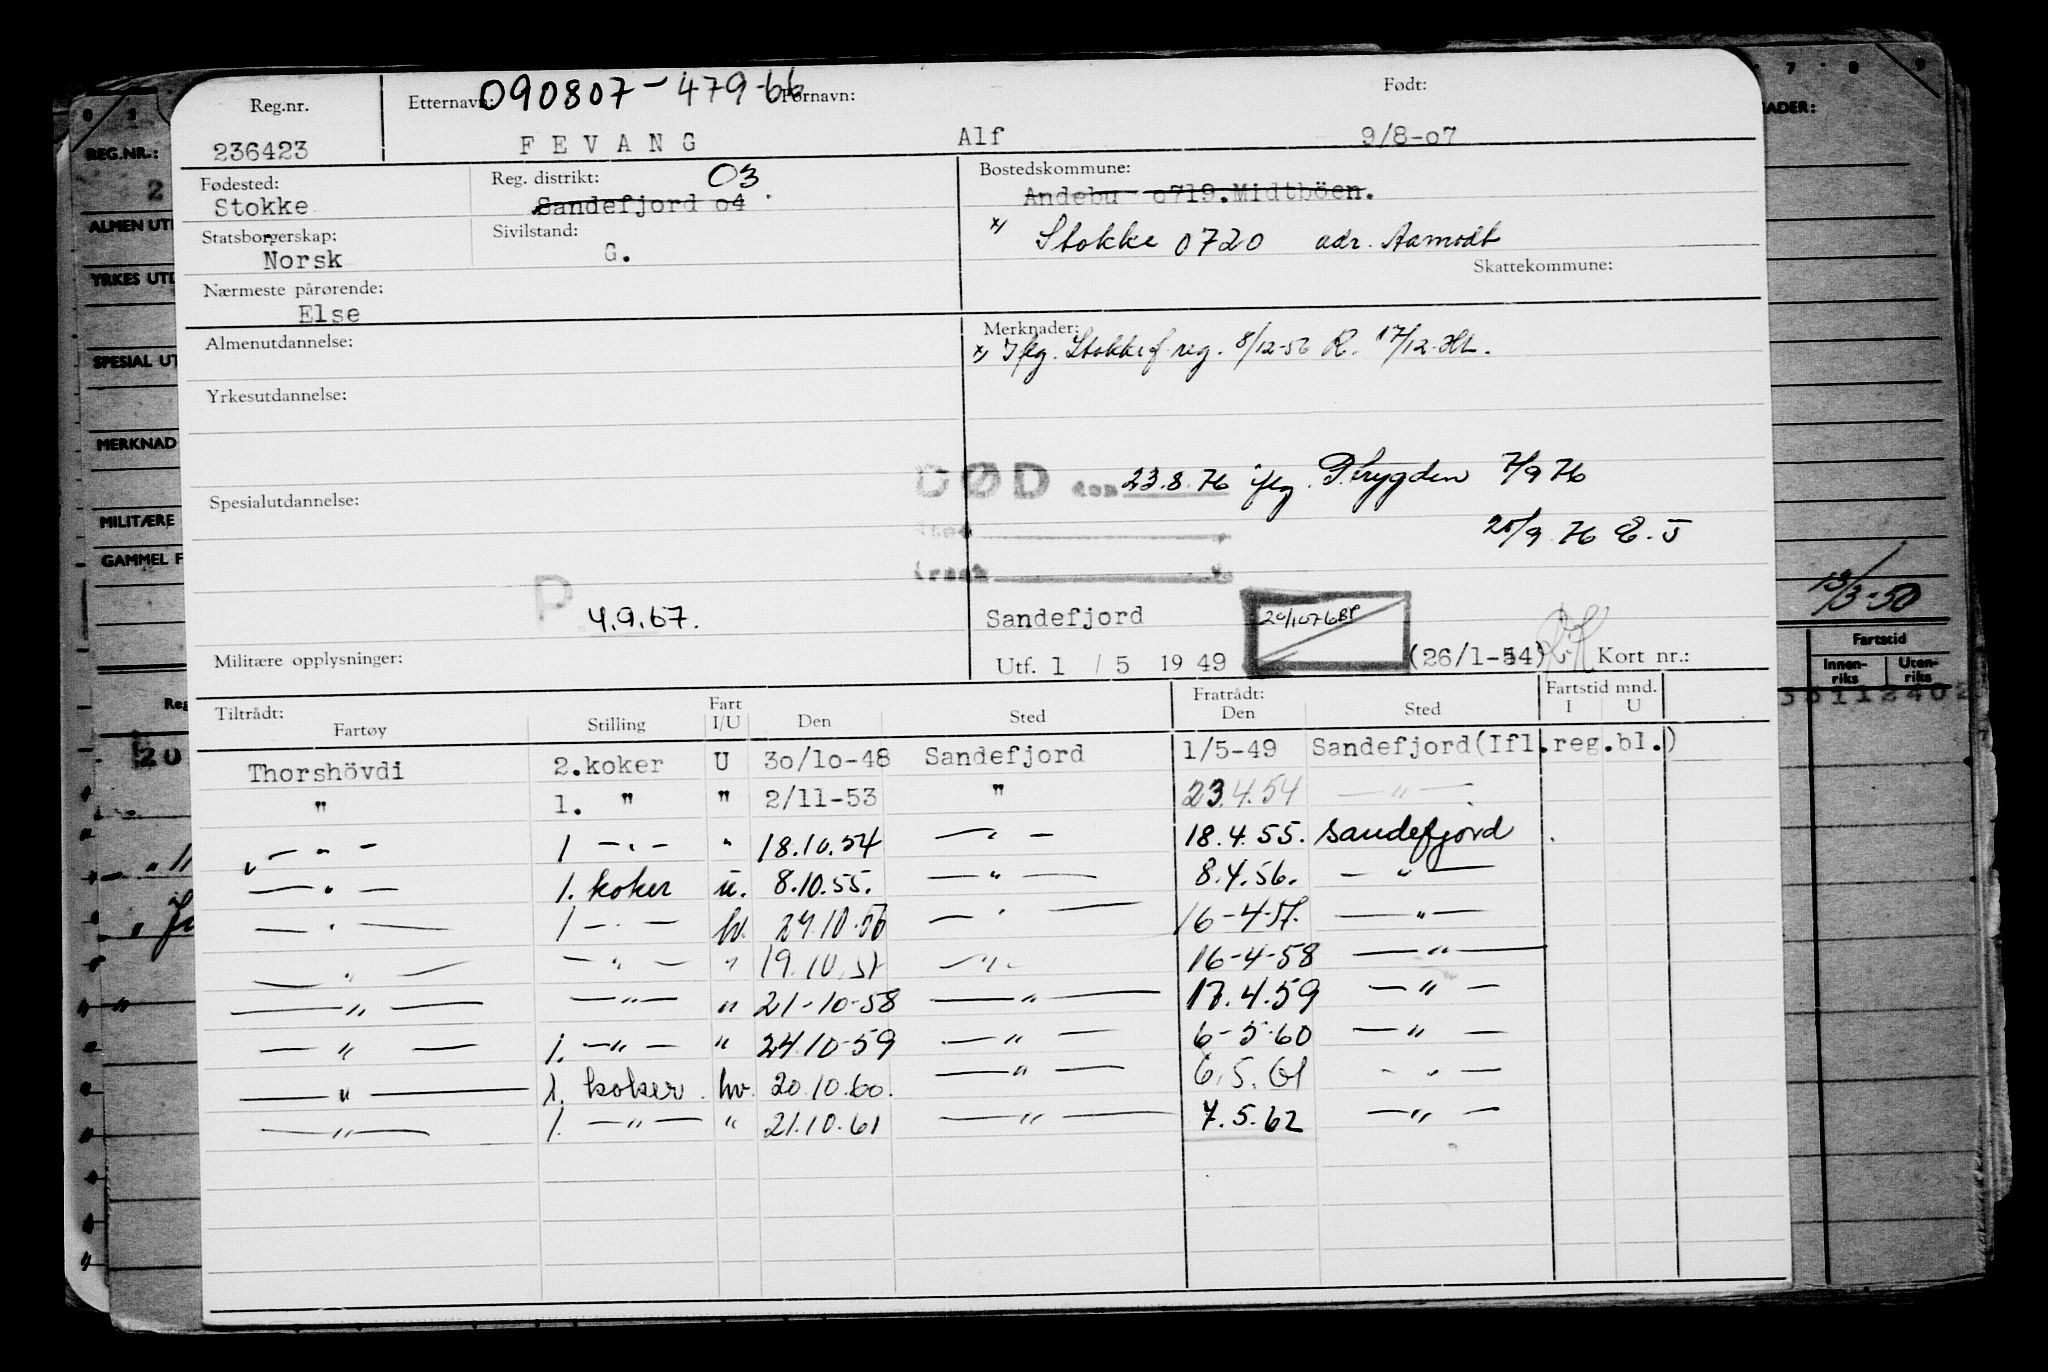 090807-479-66
Reg.nr. Etternavn: Fornavn: Født:
236423 FEVANG Alf 9/8-07
Fødested: Reg. distrikt: 03 Bostedskommune:
Stokke Sandefjord 04 Andebu 0719.Midtböen.
Statsborgerskap: Sivilstand: x) Stokke 0720 adr. Aamodt
Norsk G. Skattekommune:
Nærmeste pårørende:
Else
Almenutdannelse: Merknader:
x) Iflg. Stokke f.reg. 8/12-56 R. 17/12-
Yrkesutdannelse:
DØD den 23.8.76 iflg. P.trygden 7/9 76
Spesialutdannelse:
25/9 76 E.J
P 4.9.67.
Sandefjord 20/10 76
Militære opplysninger: Utf. 1 / 5 19 49 (26/1-54) Kort nr.:
Tiltrådt: Fart Fratrådt: Fartstid mnd.
Fartøy Stilling I/U Den Sted Den Sted I U
Thorshövdi 2.koker U 30/10-48 Sandefjord 1/5-49 Sandefjord(Ifl.reg.bl.)
" 1. " " 2/11-53 " 23.4.54 — " —
— " — 1 — " — " 18.10.54 — " — 18.4.55. Sandefjord
— " — 1. koker u. 8.10.55. — " — 8.4.56. — " —
— " — 1 — " — hv. 24.10.56 — " — 16-4-57. — " —
— " — — " — " 19.10.57 — " — 16-4-58 — " —
— " — — " — " 21-10-58 — " — 17.4.59 — " —
— " — 1. — " — " 24.10-59 — " — 6-5-60 — " —
— " — 1. koker hv. 20.10.60. — " — 6.5.61 — " —
— " — 1. — " — " 21.10.61 — " — 7.5.62 — " —
REG.NR.:
ALMEN UTD
YRKES UTD
SPESIAL UT
MERKNAD
MILITÆRE
GAMMEL F
Reg
20
7 8 9
13/3-50
Fartstid
Innen-riks Uten-riks